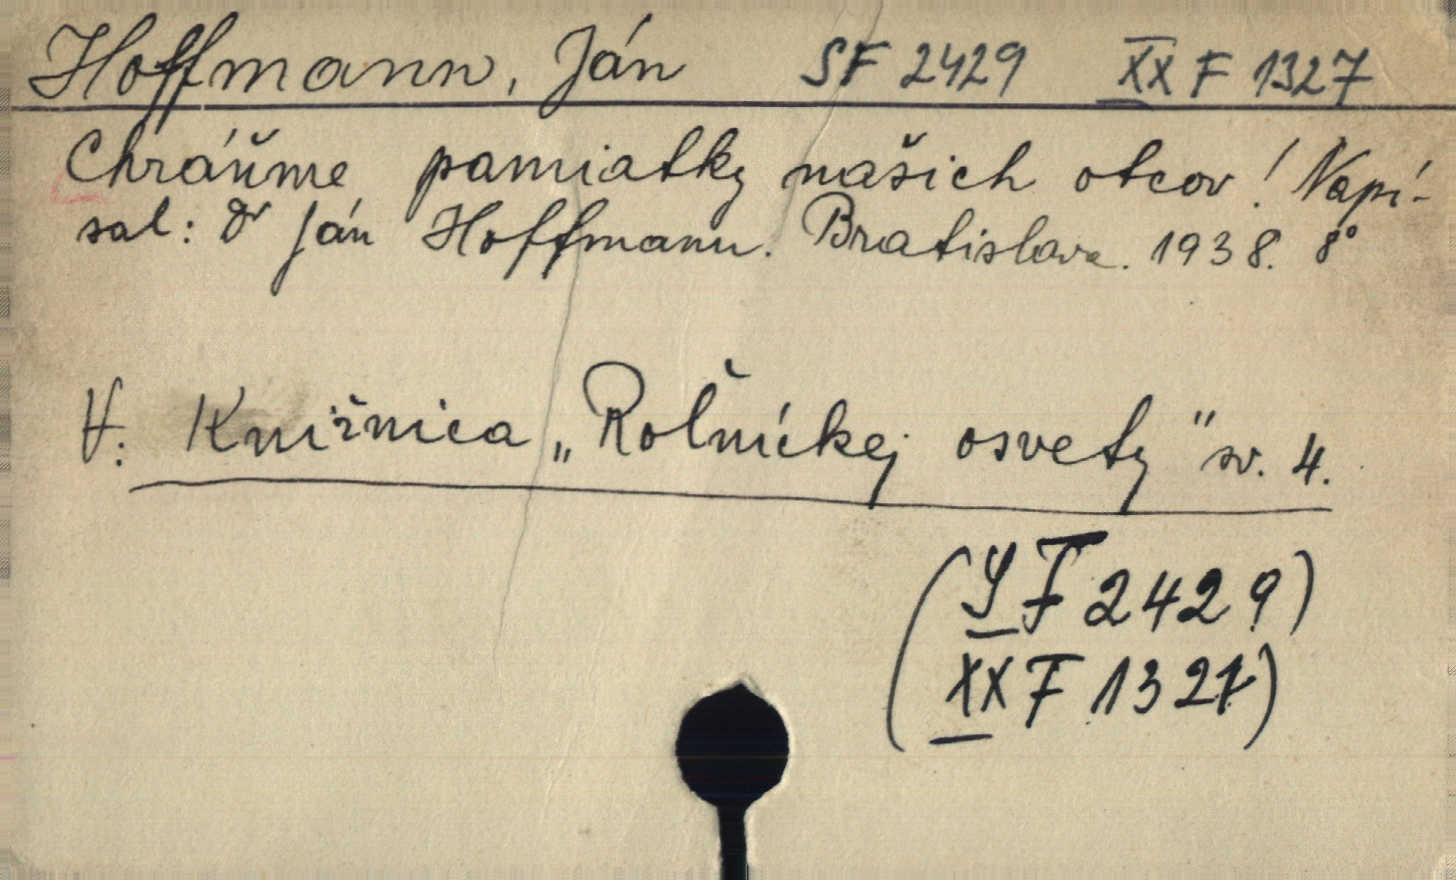 Hoffmann, Ján SF 2429 XX F 1327
Chráňme pamiatky našich otcov! Napí-
sal: Dr Ján Hoffmann. Bratislava. 1938. 8°
V: Knižnica „Roľníckej osvety" sv. 4.
(SF 2429)
(XX F 1327)